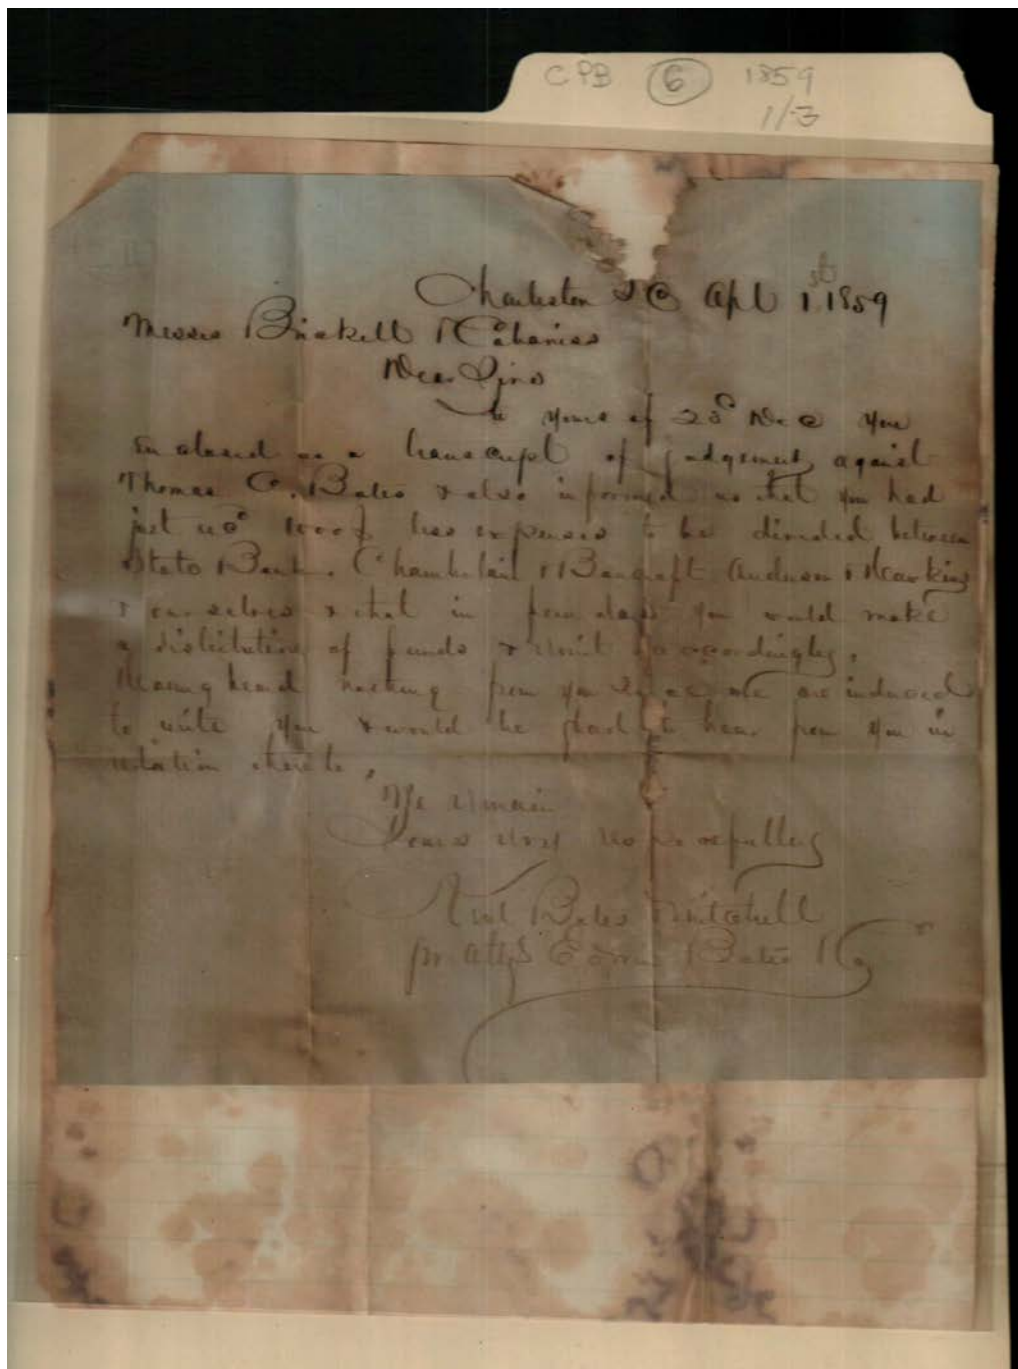 CPB 6 1859
1/3
Charleston S C Apl 1st 1859
Messrs Brickell & Cabaniss
Dear Sirs
In yours of 23d Dec you
enclosed us a transcript of judgement against
Thomas C. Bates & also informed us that you had
just recd 1000$ less expenses to be divided between
State Bank, Chamberlain & Bancroft Anderson &
& ourselves & that in few days you would make
a distribution of funds & remit us accordingly,
Having heard nothing from you since we are induced
to write you & would be glad to hear from you in
relation thereto,
We remain
Yours very respectfully
Bates Mitchell
pr attys Edwin Bates & Co